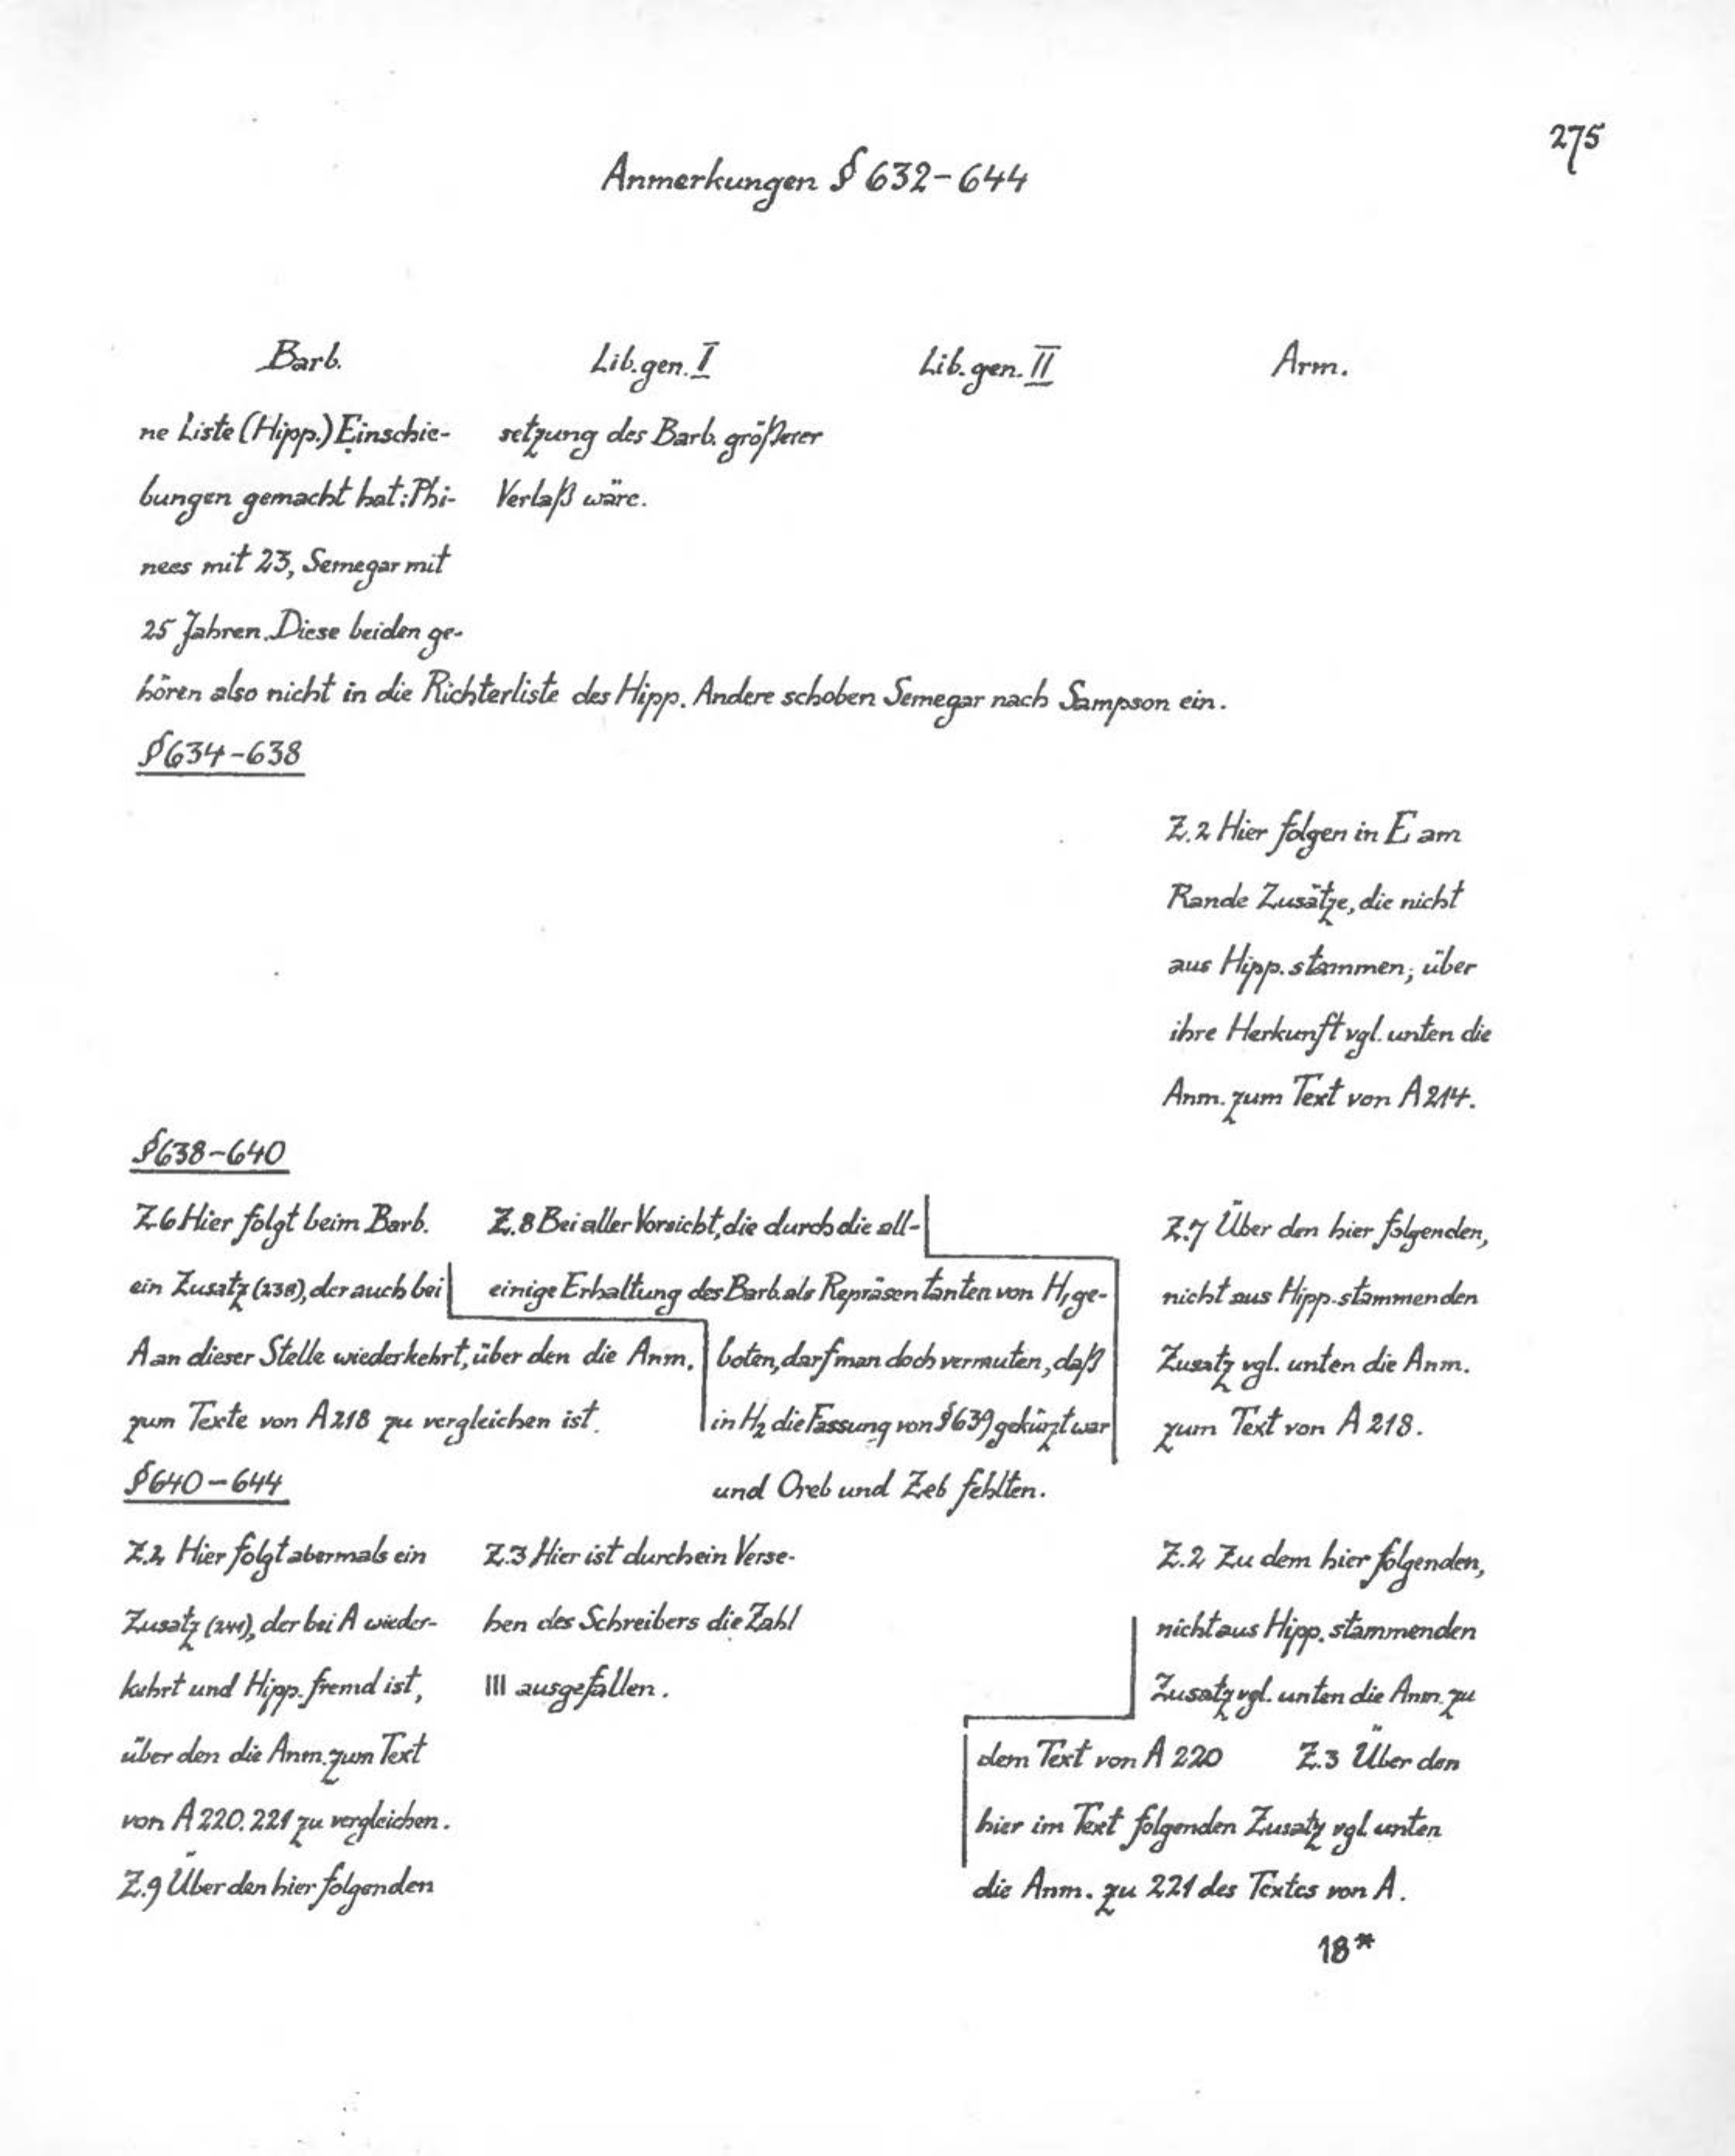 275
Anmerkungen § 632-644
Barb.
Lib. gen. I
Lib. gen. II
Arm.
ne Liste (Hipp.) Einschie-
bungen gemacht hat: Phi-
nees mit 23, Semegar mit
25 Jahren. Diese beiden ge-
setzung des Barb. größerer
Verlaß wäre.
hören also nicht in die Richterliste des Hipp. Andere schoben Semegar nach Sampson ein.
§ 634-638
Z.2 Hier folgen in E am
Rande Zusätze, die nicht
aus Hipp. stammen; über
ihre Herkunft vgl. unten die
Anm. zum Text von A 214.
§ 638-640
Z.6 Hier folgt beim Barb.
ein Zusatz (238), der auch bei
A an dieser Stelle wiederkehrt, über den die Anm.
zum Texte von A 218 zu vergleichen ist.
Z.8 Bei aller Vorsicht, die durch die all-
einige Erhaltung des Barb. als Repräsentanten von H₁ ge-
boten, darf man doch vermuten, daß
in H₂ die Fassung von § 639 gekürzt war
und Oreb und Zeb fehlten.
Z.7 Über den hier folgenden,
nicht aus Hipp. stammenden
Zusatz vgl. unten die Anm.
zum Text von A 218.
§ 640-644
Z.2 Hier folgt abermals ein
Zusatz (241), der bei A wieder-
kehrt und Hipp. fremd ist,
über den die Anm. zum Text
von A 220. 221 zu vergleichen.
Z.9 Über den hier folgenden
Z.3 Hier ist durch ein Verse-
hen des Schreibers die Zahl
III ausgefallen.
Z.2 Zu dem hier folgenden,
nicht aus Hipp. stammenden
Zusatz vgl. unten die Anm. zu
dem Text von A 220 Z.3 Über den
hier im Text folgenden Zusatz vgl. unten
die Anm. zu 221 des Textes von A.
18*